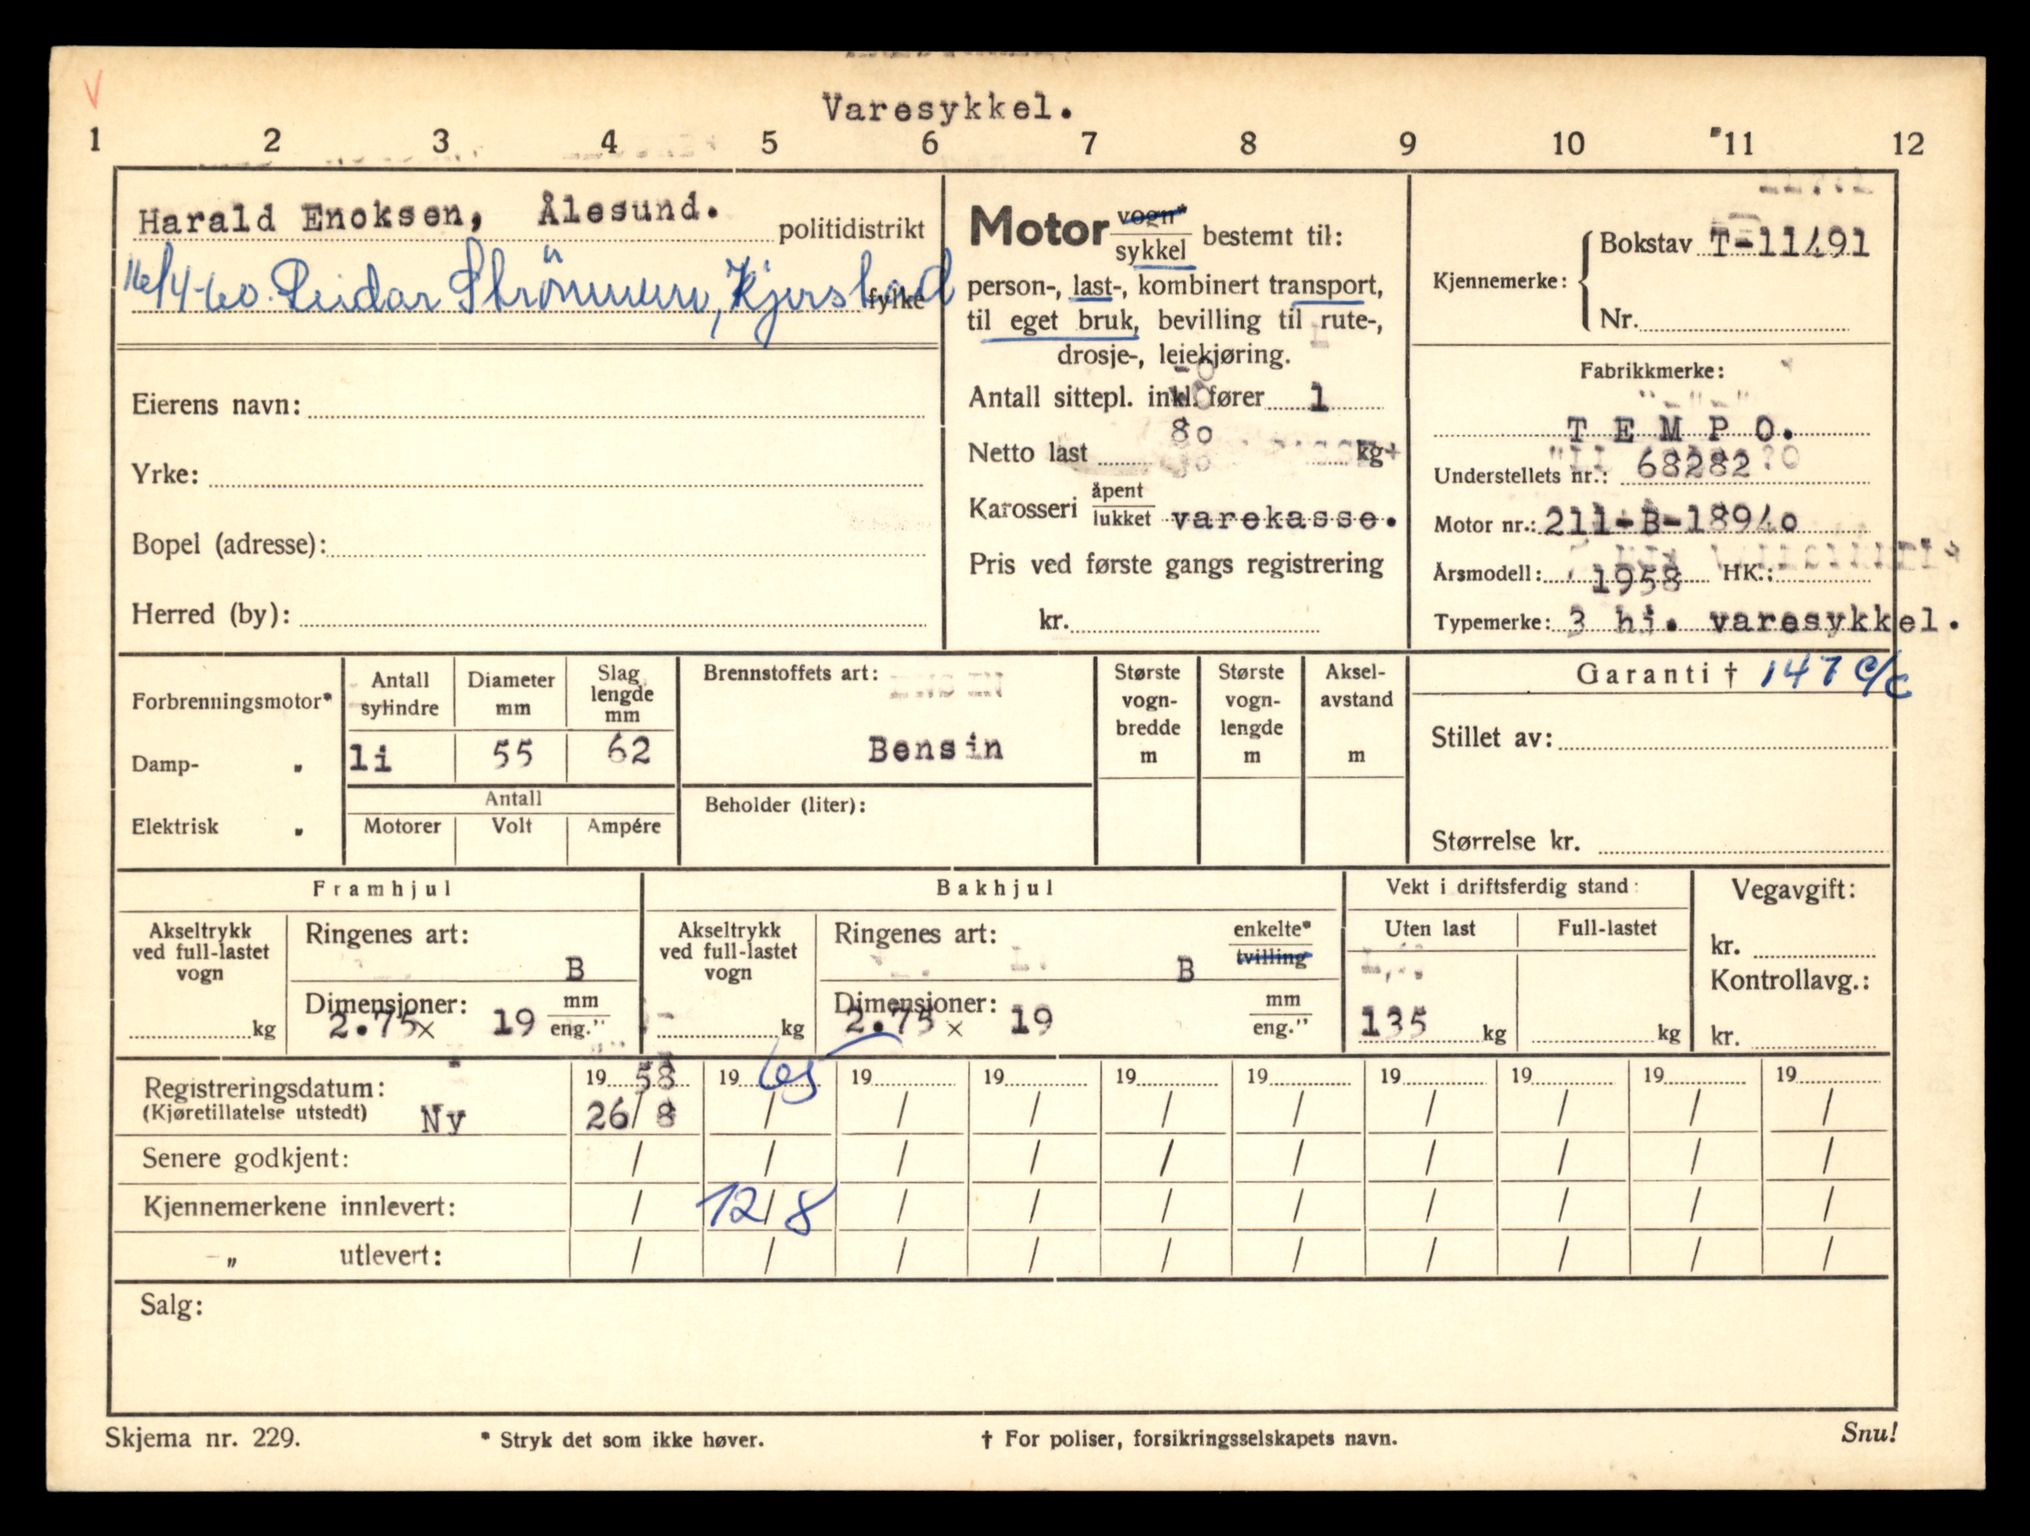 Varesykkel.
1 2 3 4 5 6 7 8 9 10 11 12
Harald Enoksen, Ålesund. politidistrikt
16/4-60. Reidar Strömmen, Kjerstad fylke
Eierens navn:
Yrke:
Bopel (adresse):
Herred (by):
Motor vogn* / sykkel bestemt til:
person-, last-, kombinert transport,
til eget bruk, bevilling til rute-,
drosje-, leiekjøring.
Antall sittepl. inkl. fører 1
Netto last 80 kg
Karosseri åpent / lukket varekasse.
Pris ved første gangs registrering
kr.
Kjennemerke: Bokstav T-11491
Nr.
Fabrikkmerke:
TEMPO.
Understellets nr.: 68282
Motor nr.: 211-B-18940
Årsmodell: 1958 HK.:
Typemerke: 3 hj. varesykkel.
Forbrenningsmotor*
Damp- „
Elektrisk „
Antall sylindre
1i
Diameter mm
55
Slaglengde mm
62
Antall
Motorer Volt Ampére
Brennstoffets art:
Bensin
Beholder (liter):
Største vogn-bredde m
Største vogn-lengde m
Aksel-avstand m
Garanti † 147 c/c
Stillet av:
Størrelse kr.
Framhjul
Akseltrykk ved full-lastet vogn
kg
Ringenes art:
B
Dimensjoner:
2.75 x 19 mm / eng."
Bakhjul
Akseltrykk ved full-lastet vogn
kg
Ringenes art: enkelte* / tvilling
B
Dimensjoner:
2.75 x 19 mm / eng."
Vekt i driftsferdig stand:
Uten last Full-lastet
135 kg kg
Vegavgift:
kr.
Kontrollavg.:
kr.
Registreringsdatum: 19 58 19 65 19 19 19 19 19 19 19 19
(Kjøretillatelse utstedt) Ny 26/8 / / / / / / / / /
Senere godkjent: / / / / / / / / / /
Kjennemerkene innlevert: / 12/8 / / / / / / / /
-„ utlevert: / / / / / / / / / /
Salg:
Skjema nr. 229. * Stryk det som ikke høver. † For poliser, forsikringsselskapets navn. Snu!